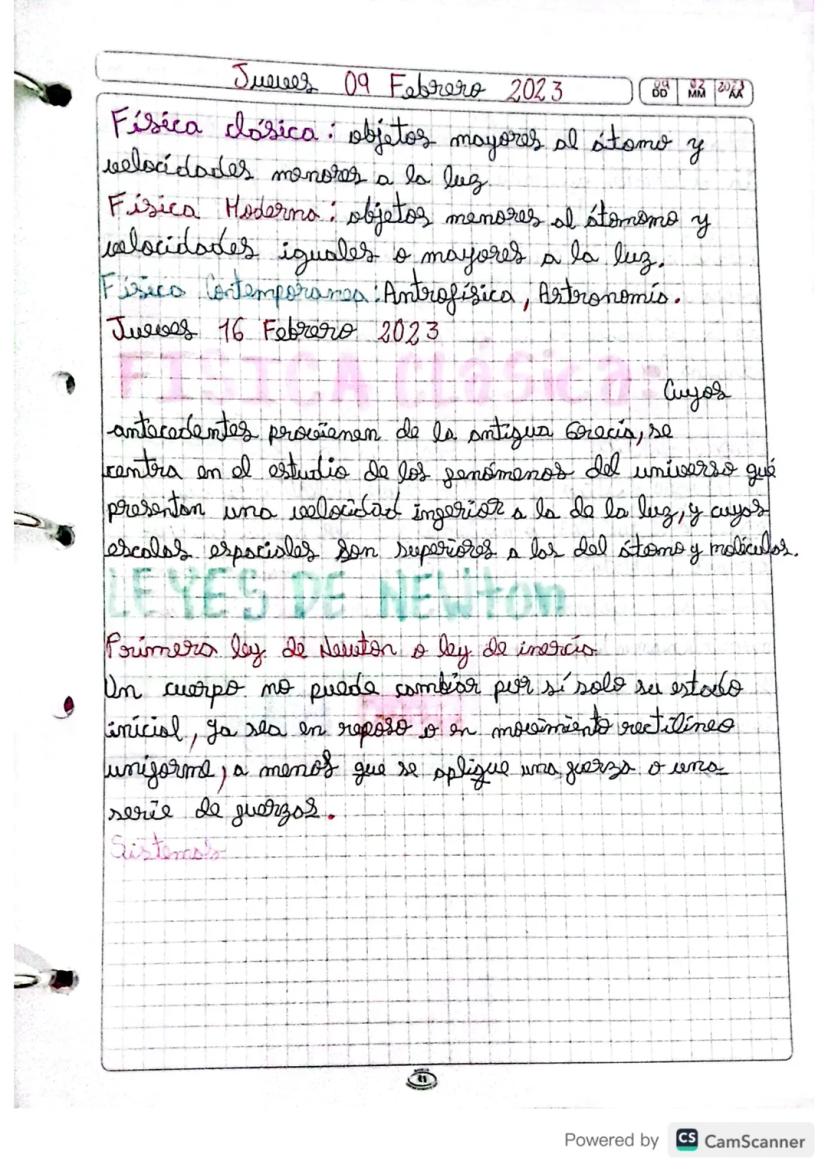 Jueves 09 Febrero 2023
09 DD 02 MM 2023 AA
Física clásica: objetos mayores al átomo y
velocidades menores a la luz.
Física Moderna: objetos menores al átomomo y
velocidades iguales o mayores a la luz.
Física Contemporanea: Antrofísica, Astronomía.
Jueves 16 Febrero 2023
FISICA Clasica:
Cuyos
antecedentes provienen de la antigua Grecia, se
centra en el estudio de los fenómenos del universo que
presentan una velocidad inferior a la de la luz, y cuyas
escalas espaciales son superiores a las del átomo y moléculas.
LEYES DE NEWton
Primera ley de Newton o ley de inercia
Un cuerpo no puede cambiar por sí solo su estado
inicial, ya sea en reposo o en movimiento rectilíneo
uniforme, a menos que se aplique una fuerza o una
serie de fuerzas.
Sistemas
Powered by CS CamScanner